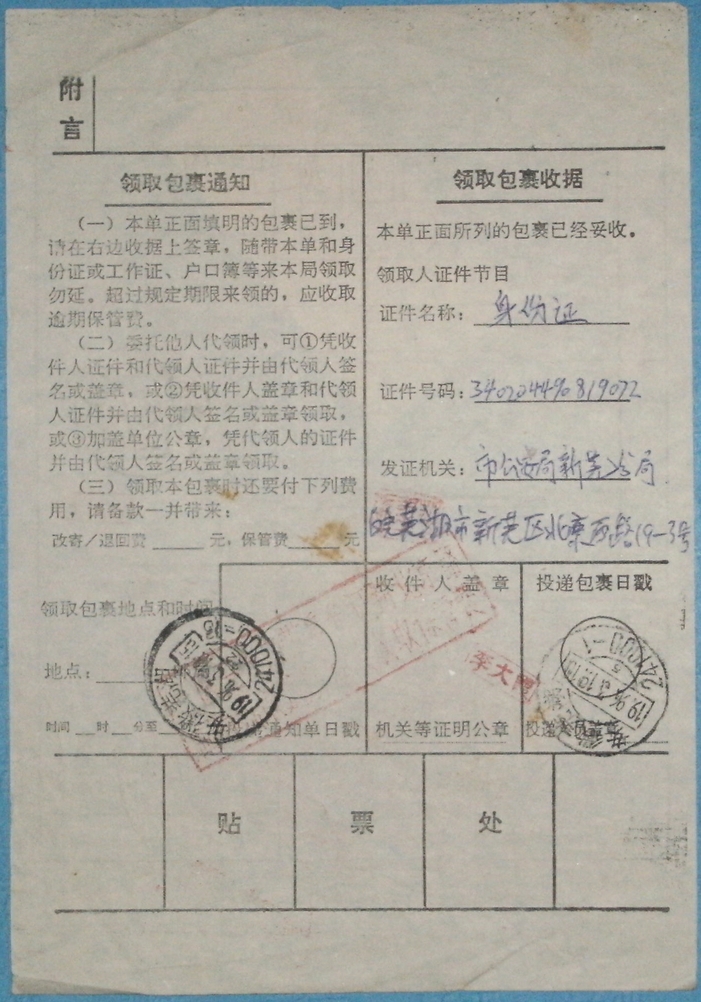 附
言
领取包裹通知
（一）本单正面填明的包裹已到，
请在右边收据上签章，随带本单和身
份证或工作证、户口簿等来本局领取
勿延。超过规定期限来领的，应收取
逾期保管费。
（二）委托他人代领时，可①凭收
件人证件和代领人证件并由代领人签
名或盖章，或②凭收件人盖章和代领
人证件并由代领人签名或盖章领取，
或③加盖单位公章，凭代领人的证件
并由代领人签名或盖章领取。
（三）领取本包裹时还要付下列费
用，请备款一并带来：
改寄／退回费 元，保管费 元
领取包裹收据
本单正面所列的包裹已经妥收。
领取人证件节目
证件名称：身份证
证件号码：
发证机关：市公安局新芜分局
芜湖市新芜区北京西路19-3号
领取包裹地点和时间
地点：
时间 时 分至
通知单日戳
241000-18
收件人盖章
李大
机关等证明公章
投递包裹日戳
241000-1
安徽
投递
贴 票 处